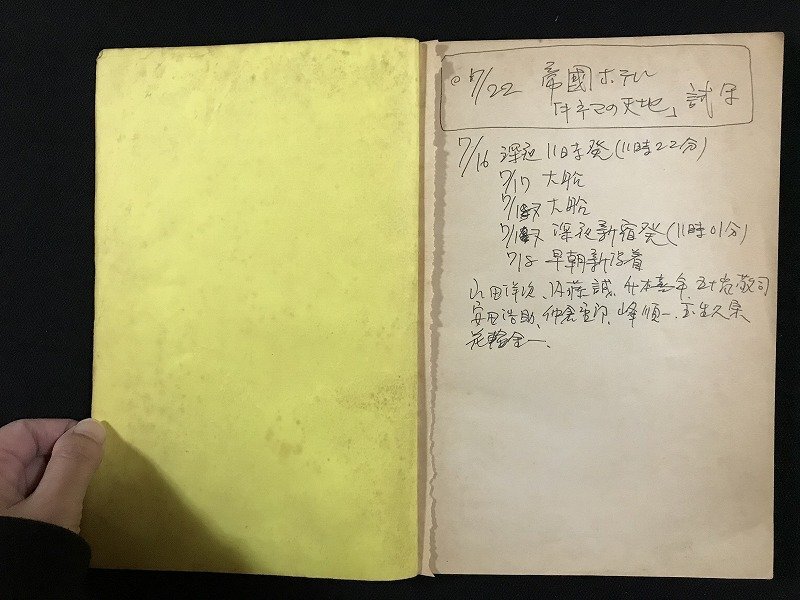 7/22 帝國ホテル
「キネマの天地」試写
7/16 深夜11時発(11時22分)
7/17 大船
大船
深夜新宿発(11時01分)
7/18 早朝新潟着
山田洋次、佐藤誠、五十嵐敬司
安田浩助、峰順一、玉生久宗
花輪金一、